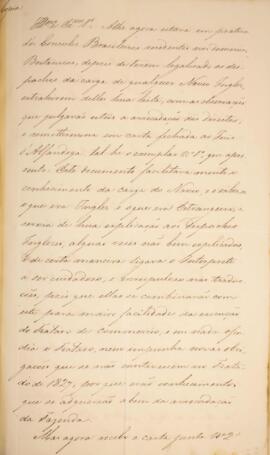 Copia
Illmo Exmo Sr. Athe agora estava em pratica
dos Consules Brasileiros residentes nos dominios
Britanicos, depois de terem legalisado os des-
pachos da carga de qualquer Navio Inglez,
extrahirem delles huma Lista, com as observaçoens
que julgavão uteis a arrecadação dos direitos,
e remetterem-na com carta fechada ao Juiz
d'Alfandega tal he o exemplar Nº 1º que apre-
sento. Este documento facilitava muito o
conhecimento da carga do Navio, e o saber-se
o que era Inglez, e o que era Estrangeiro, e
servia de huma explicação aos Despachos
Inglezes, algumas vezes não bem explicados,
E de certa maneira ligava o Interprete
a ser cuidadoso, e escrupuloso nas traduc-
çoens, pois que ellas se combinavão com
este para maior facilidade da execução
do Tratado de commercio, e em nada offen-
dia o Tratado, nem impunha novas obri-
gaçoens que se não contivessem no Trata-
do de 1827, por que erão conhecimentos
que se adquirião a bem da arrecadação
da Fazenda.
Mas agora recebi a carta junta Nº 2